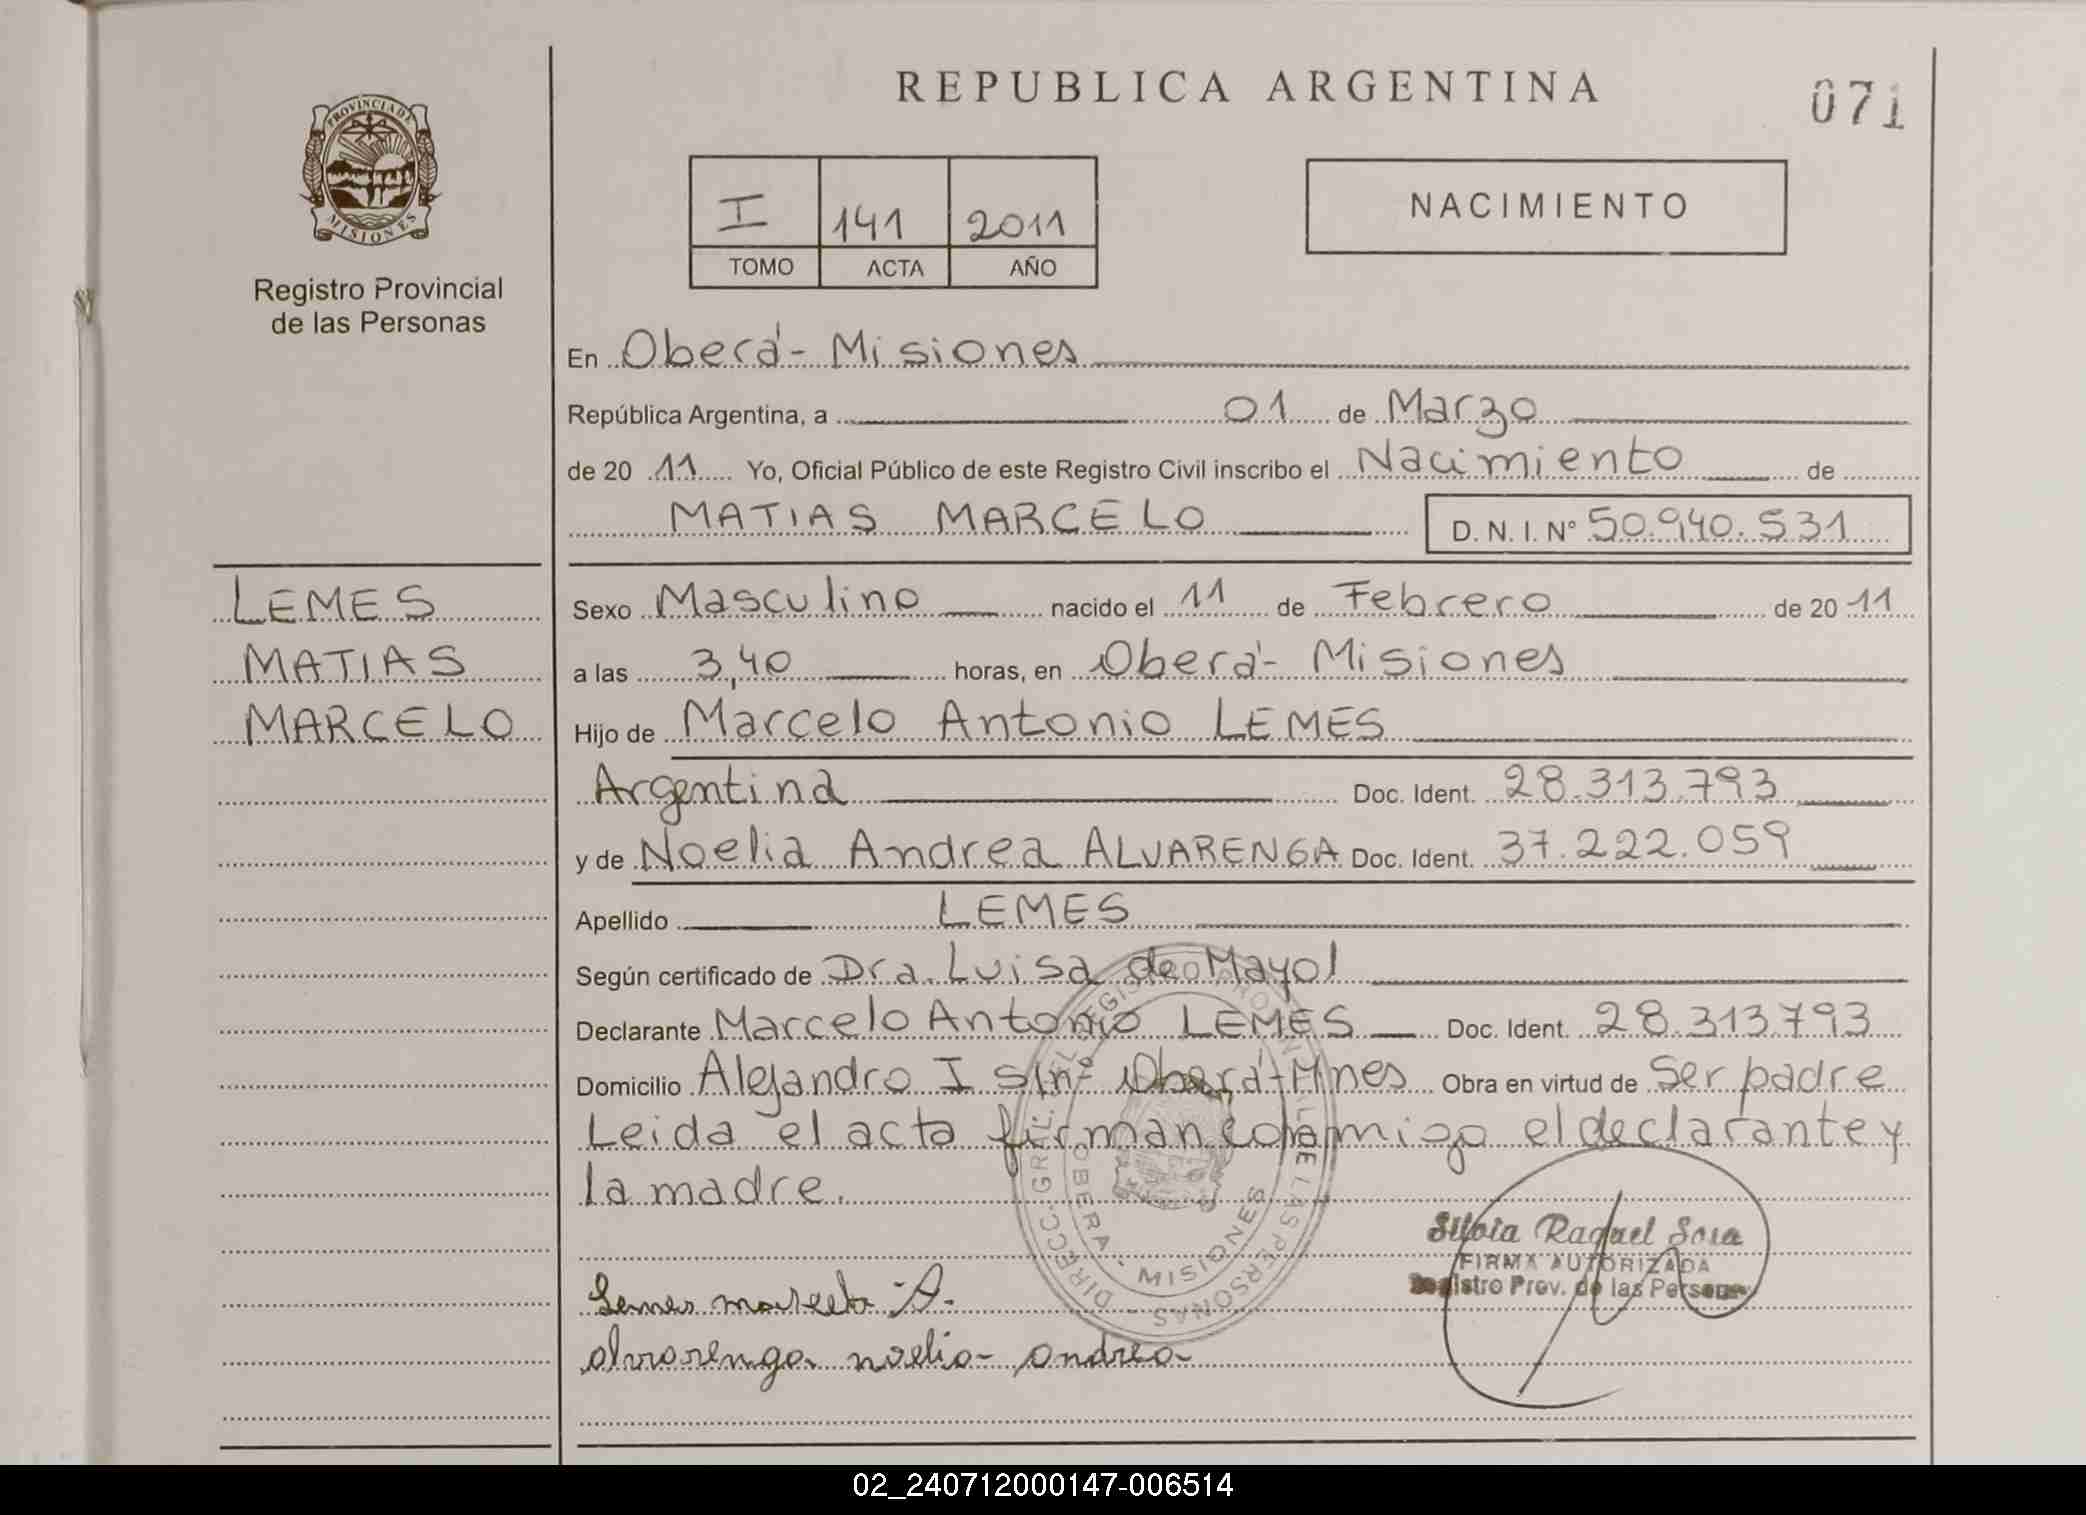 REPUBLICA ARGENTINA
071
PROVINCIA DE
MISIONES
Registro Provincial
de las Personas
I 141 2011
TOMO ACTA AÑO
NACIMIENTO
En Oberá - Misiones
República Argentina, a 01 de Marzo
de 20 11 Yo, Oficial Público de este Registro Civil inscribo el Nacimiento de
MATIAS MARCELO D. N. I. N° 50.940.531
LEMES
MATIAS
MARCELO
Sexo Masculino nacido el 11 de Febrero de 20 11
a las 3,40 horas, en Oberá - Misiones
Hijo de Marcelo Antonio LEMES
Argentina Doc. Ident. 28.313.793
y de Noelia Andrea ALVARENGA Doc. Ident. 37.222.059
Apellido LEMES
Según certificado de Dra. Luisa de Mayol
Declarante Marcelo Antonio LEMES Doc. Ident. 28.313.793
Domicilio Alejandro I S/nº Oberá - Mnes Obra en virtud de Ser padre
Leida el acta firman conmigo el declarante y
la madre.
DIRECC. GRL. DEL REGISTRO PROVINCIAL DE LAS PERSONAS
OBERA - MISIONES
Silvia Raquel Sosa
FIRMA AUTORIZADA
Registro Prov. de las Personas
Lemes marcelo A.
alvarenga noelia andrea
02_240712000147-006514